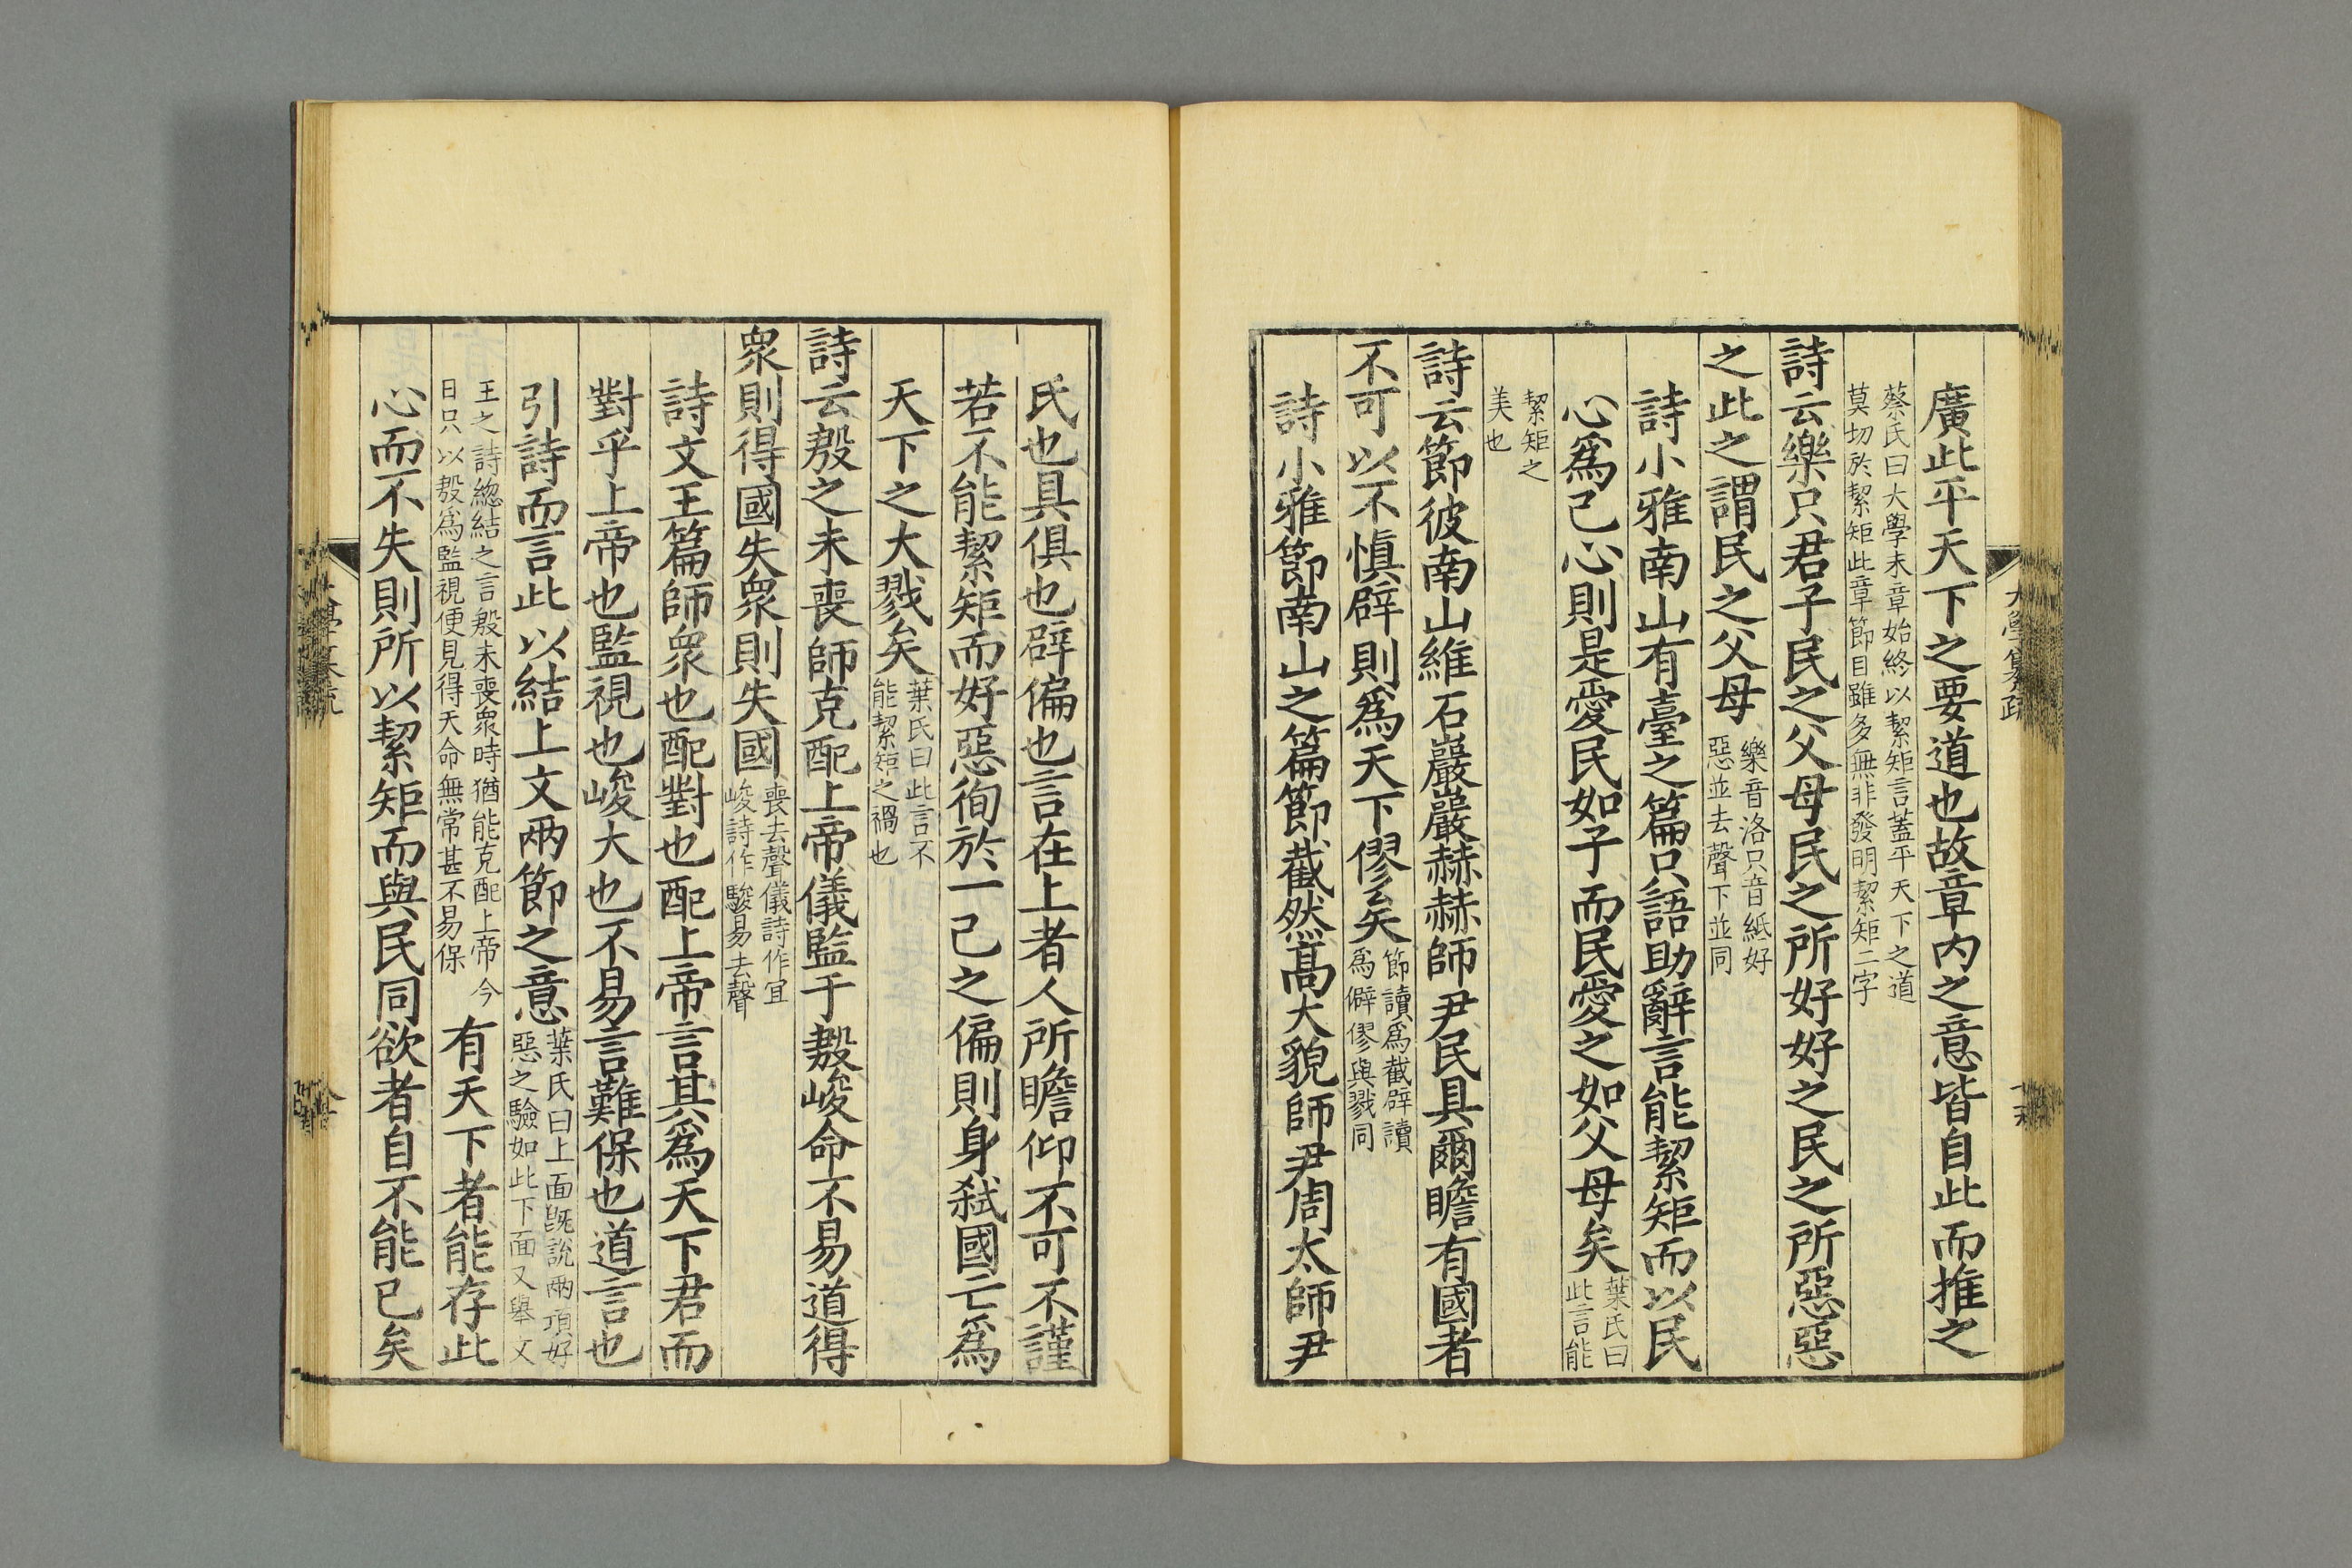 大學纂疏
廣此平天下之要道也故章内之意皆自此而推之
蔡氏曰大學末章始終以絜矩言蓋平天下之道
莫切於絜矩此章節目雖多無非發明絜矩二字
詩云樂只君子民之父母民之所好好之民之所惡惡
之此之謂民之父母
樂音洛只音紙好
惡並去聲下並同
詩小雅南山有臺之篇只語助辭言能絜矩而以民
心爲己心則是愛民如子而民愛之如父母矣
葉氏曰
此言能
絜矩之
美也
詩云節彼南山維石巖巖赫赫師尹民具爾瞻有國者
不可以不愼辟則爲天下僇矣
節讀爲截辟讀
爲僻僇與戮同
詩小雅節南山之篇節截然高大貌師尹周太師尹
氏也具俱也辟偏也言在上者人所瞻仰不可不謹
若不能絜矩而好惡徇於一己之偏則身弑國亡爲
天下之大戮矣
葉氏曰此言不
能絜矩之禍也
詩云殷之未喪師克配上帝儀監于殷峻命不易道得
衆則得國失衆則失國
喪去聲儀詩作宜
峻詩作駿易去聲
詩文王篇師衆也配對也配上帝言其爲天下君而
對乎上帝也監視也峻大也不易言難保也道言也
引詩而言此以結上文兩節之意
葉氏曰上面旣說兩項好
惡之驗如此下面又舉文
王之詩緫結之言殷未喪衆時猶能克配上帝今
日只以殷爲監視便見得天命無常甚不易保
有天下者能存此
心而不失則所以絜矩而與民同欲者自不能已矣